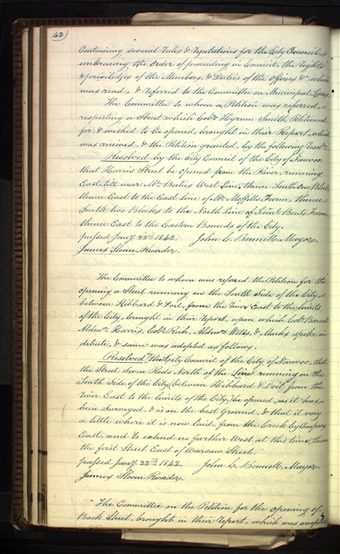 62)
Containing several Rules & regulations for the City Council,
embracing the Order of proceeding in Council, the Rights
& privileges of the Members, & Duties of the Officers &c which
was read, & referred to the Committee on Municipal Laws.
The Committee to whom a Petition was referred
respecting a Street which Col. Hyrum Smith Petitioned
for & wished to be opened, brought in their Report, which
was received, & the Petition granted by the following
Resolved by the City Council of the City of Nauvoo,
that Street be opened from the River running
East near Mr. West Line, thence South Block
thence East to the East line of Mr. Moffitts Farm, thence
South two Blocks to the North line of Farm,
thence East to the Eastern Bounds of the City.
passed Jany. 22nd 1842. John C. Bennett, Mayor.
James Sloan, Recorder.
The Committee to whom was refered the Petition for the
opening a Street running on the South Side of the City
between Hibbard & from the River East to the limits
of the City, brought in their report, upon which
Aldn. Harris, Aldn. Wells, & Marks spoke in
debate, & same was adopted as follows.
Resolved City Council of the City of Nauvoo, that
the Street Seven Rods North of the Line running on the
South Side of the City, between Hibbard & from the
River East to the limits of the City, be opened, as it has
been Surveyed & is on the best ground, & that it vary
a little where it is now laid, from the Creek by
East, and to extend no further West at this time, than
the first Street East of Warsaw Street.
passed Jany. 22nd 1842. John C. Bennett, Mayor.
James Sloan Recorder.
The Committee on the Petition for the opening of
Street, brought in their Report, which was